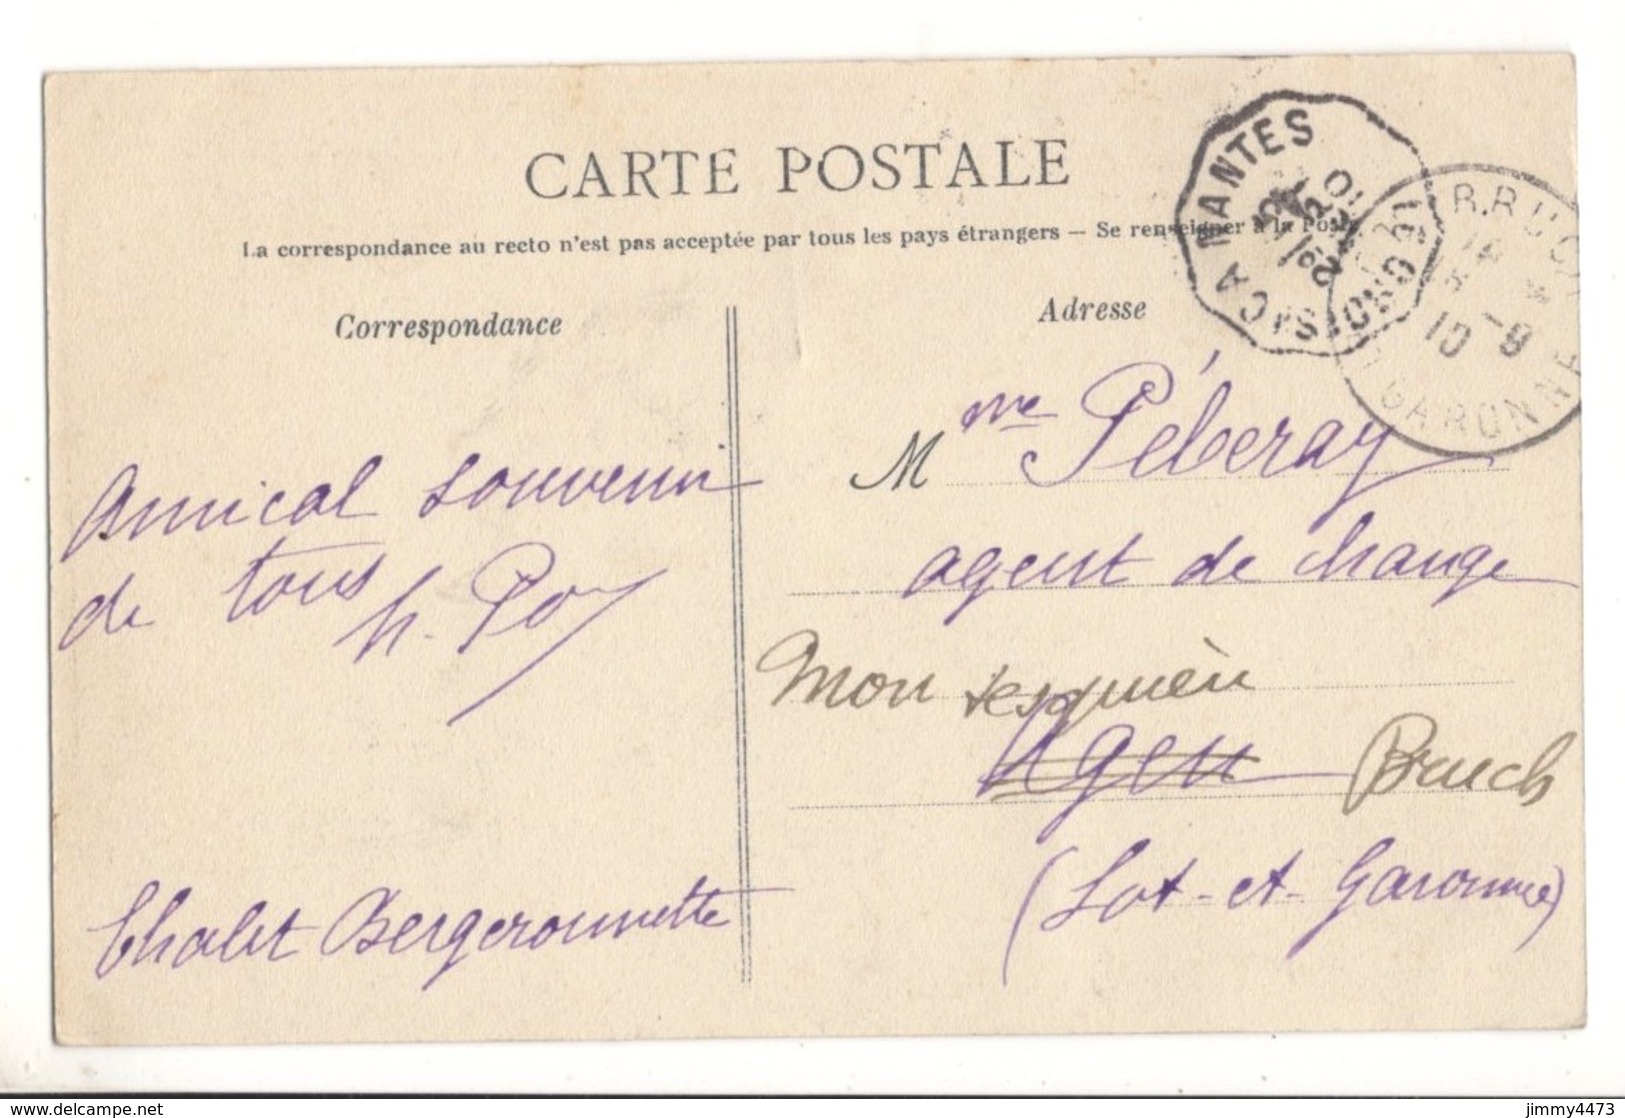 CARTE POSTALE
La correspondance au recto n'est pas acceptée par tous les pays étrangers — Se renseigner à la Poste.
Correspondance
Adresse
Amical souvenir
de tous
h. Poy
Chalet Bergeronnette
Mme Péberay
agent de change
Montesquieu
Agen Bruch
(Lot-et-Garonne)
NANTES
GARONNE
10 - 9
www.delcampe.net
jimmy4473